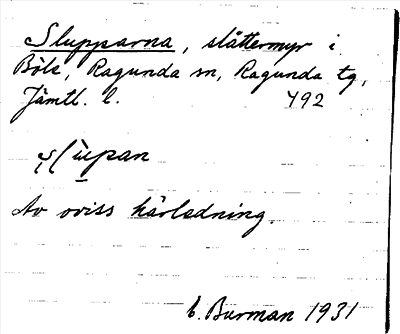 Slupparna, slåttermyr i
Böle, Ragunda sn, Ragunda tg,
Jämtl. l. 492
Av oviss härledning.
E. Burman 1931